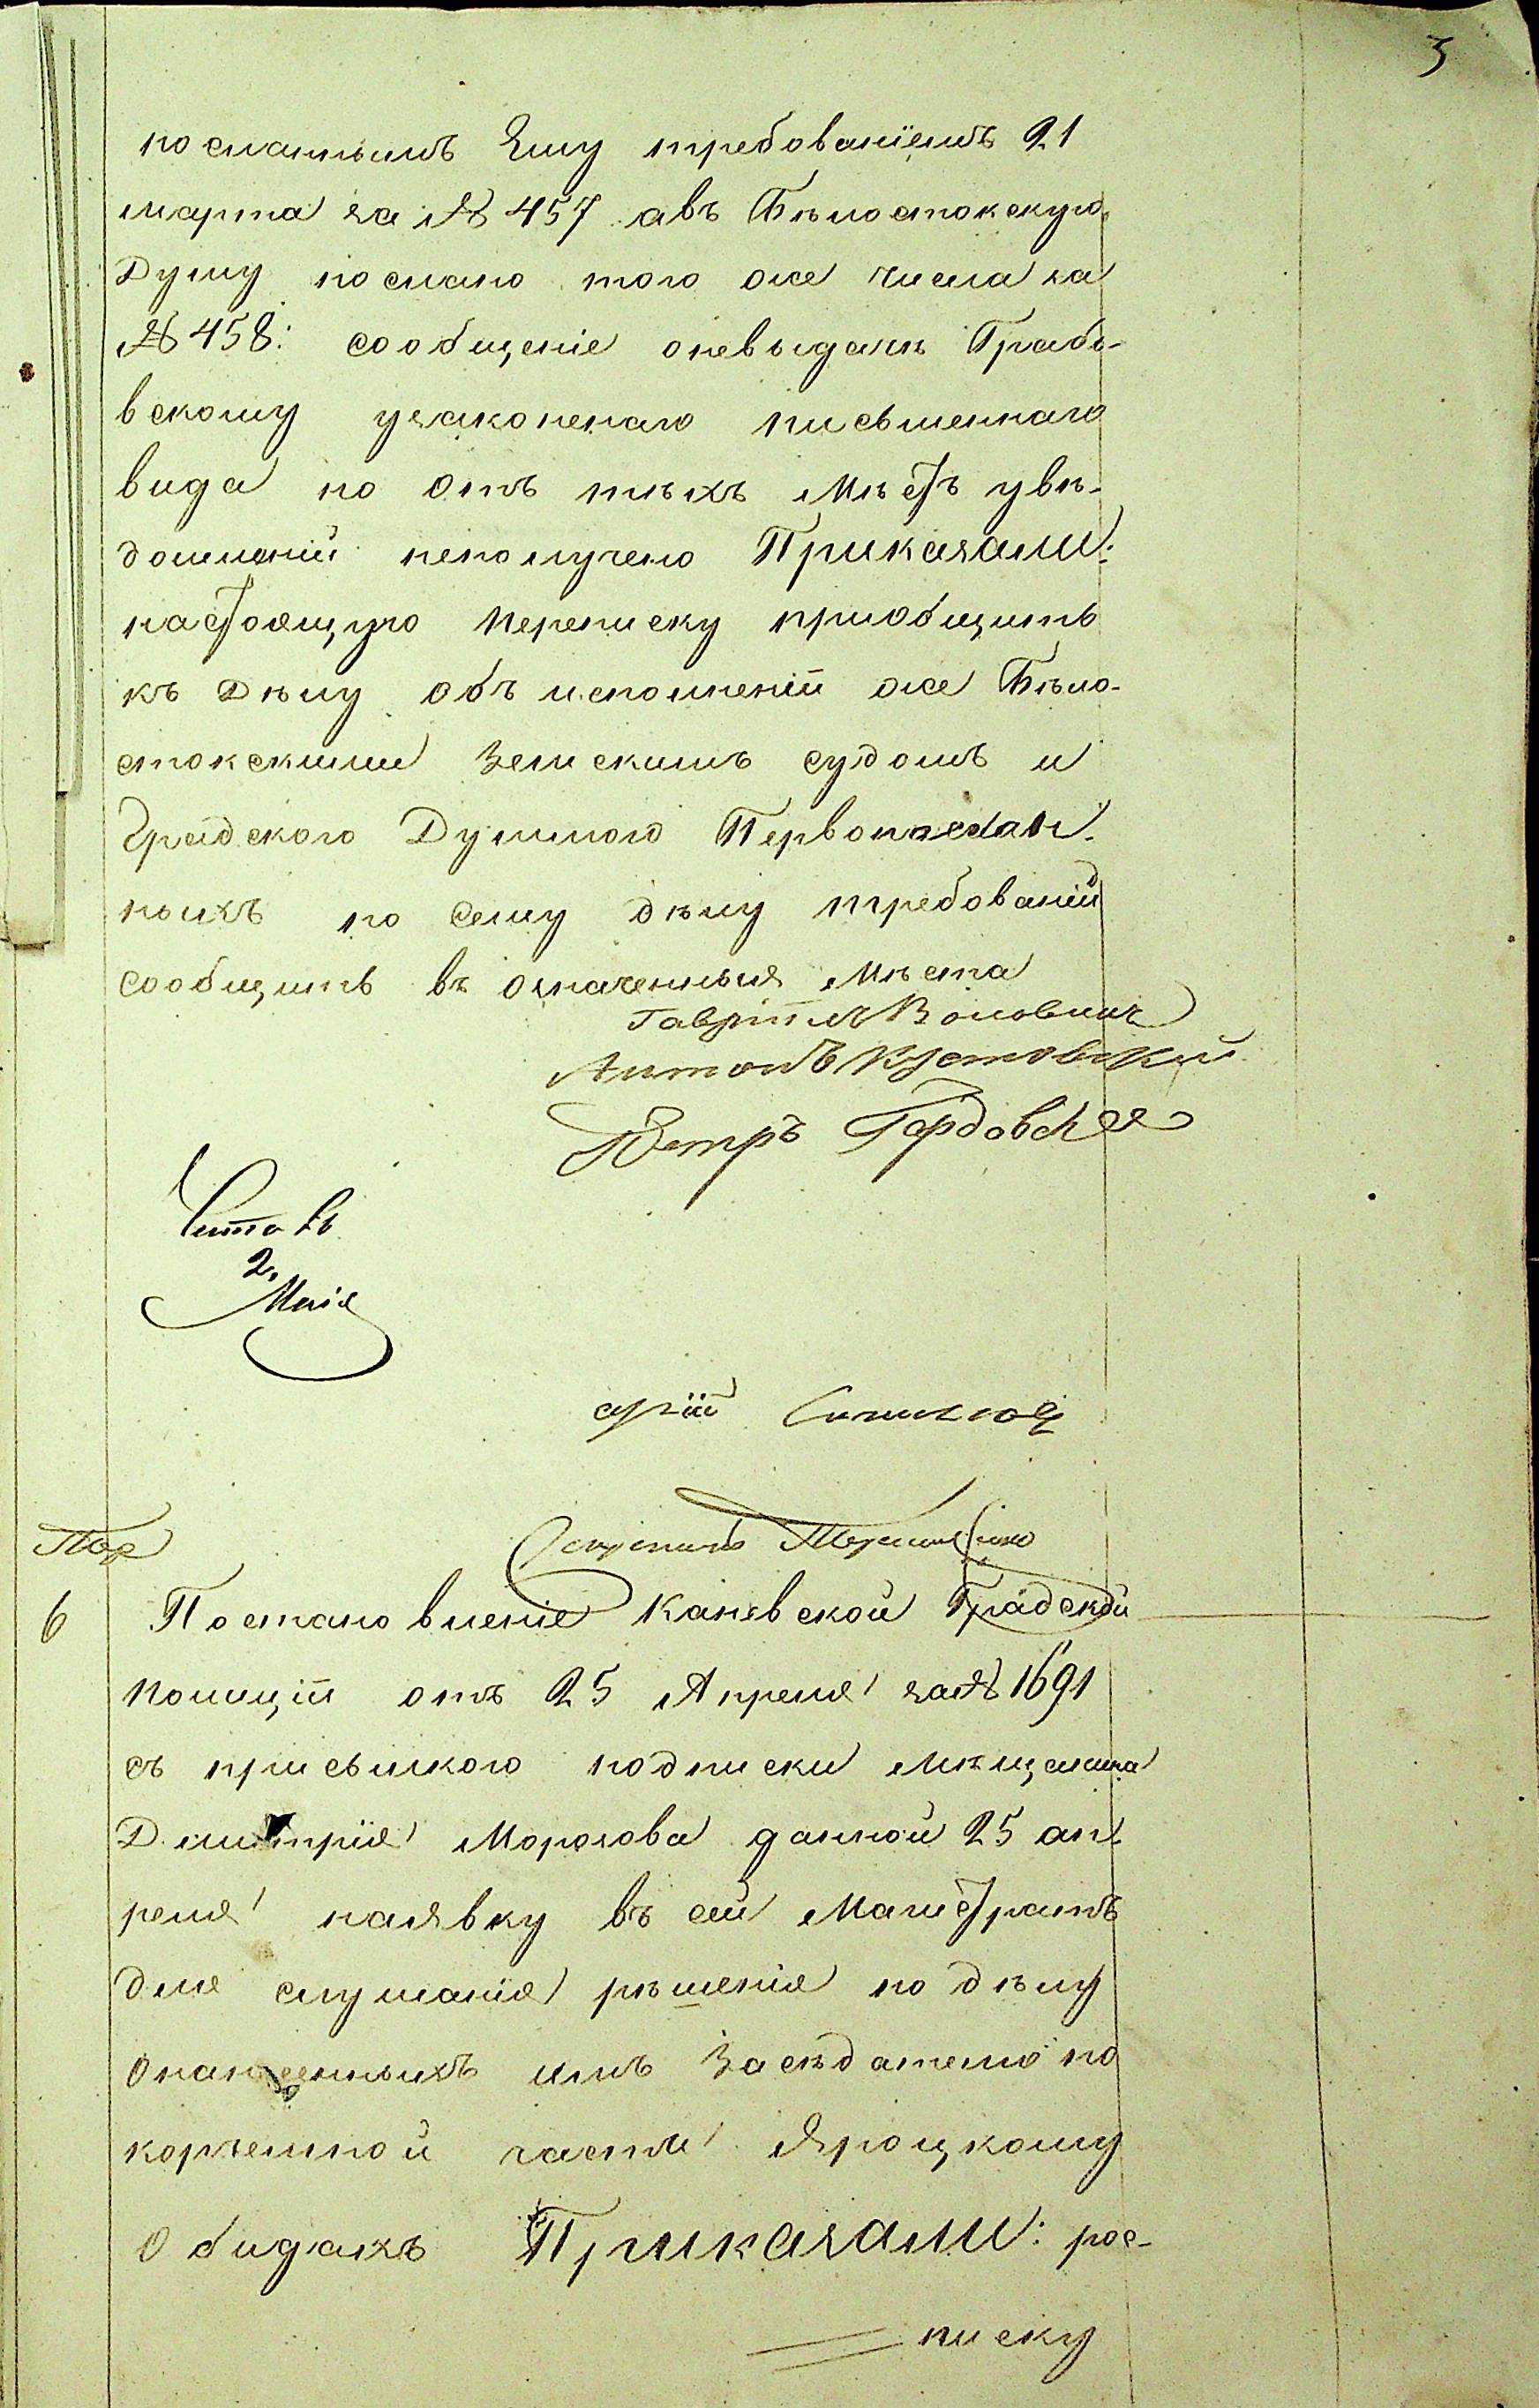 3
посланнымъ Ему требованіемъ 21
марта за № 457 авъ Бѣлостокскую
Думу послано того же числа за
№ 458: сообщеніе оневыдачѣ Грабо-
вскому узаконенаго письменнаго
вида но отъ тѣхъ Мѣстъ увѣ-
домленій неполучено Приказали:
настоящую переписку приобщить
къ Дѣлу объ исполненіи же Бѣло-
стокскими Земскимъ судомъ и
Градского Думного Первопосылан-
ныхъ по сему дѣлу требованій
сообщить въ означенныя Мѣста
Гавріилъ Воловичъ
Антонъ
Петръ
Читалъ
2.
Маія
арій
Секретарь
6 Постановленіе Каневской Градской
Полиціи отъ 25 Апреля за № 1691
съ присылкою подписки Мѣщанина
Дмитрія Морозова данной 25 ап-
реля наявку въ сей Магистратъ
для слушанія рѣшенія по дѣлу
Онанесенныхъ имъ Засѣдателю по
корчемной части Яроцкому
Обидахъ Приказали: рос-
писку